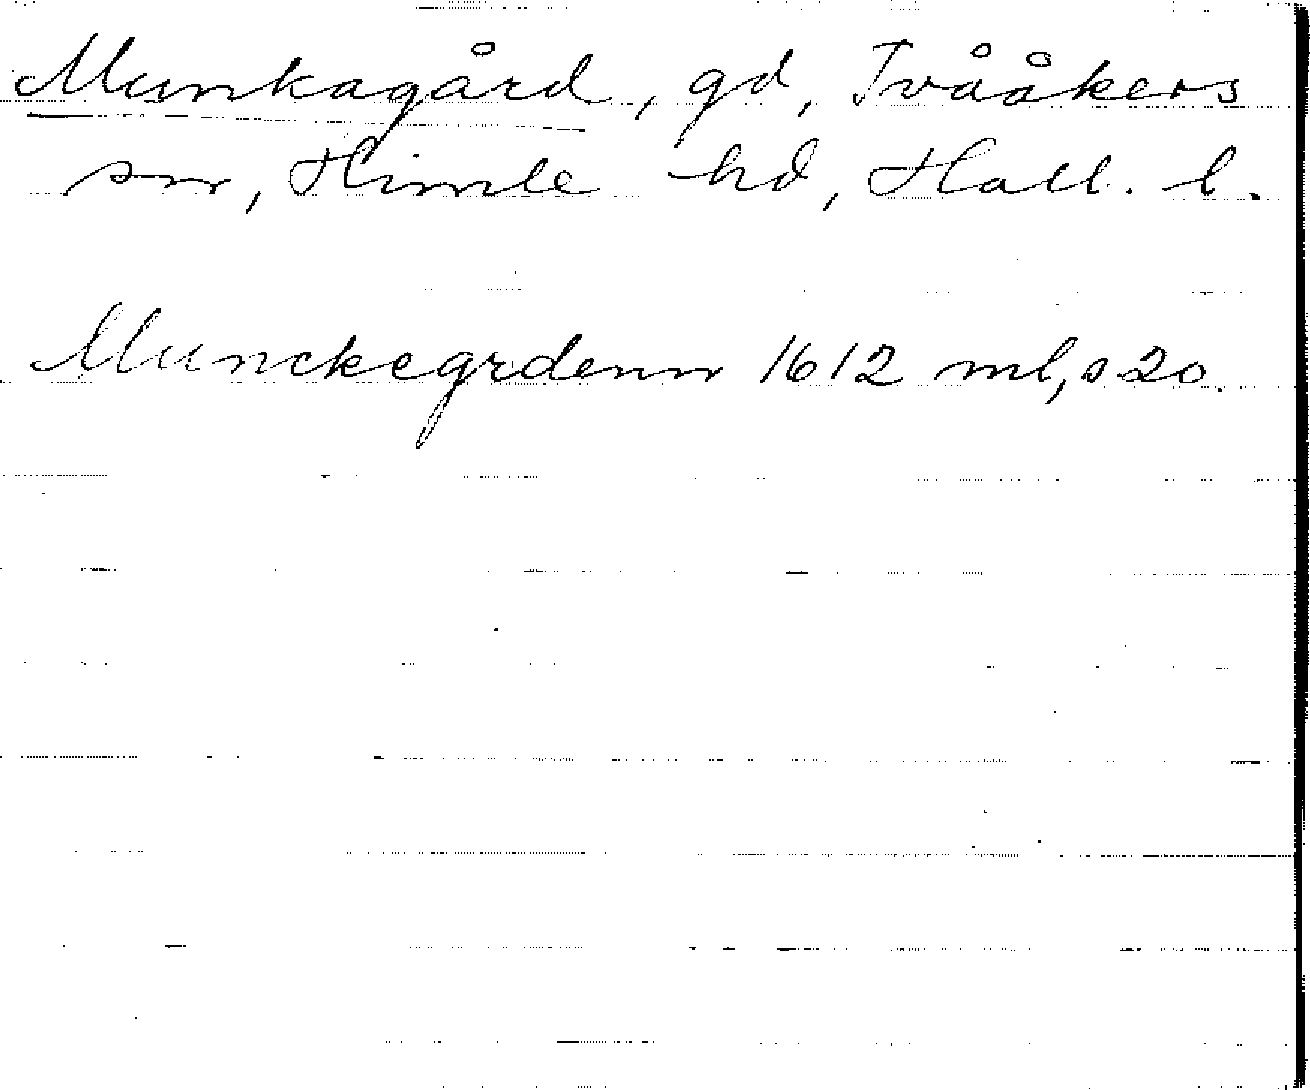 Munkagård, gd, Tvååkers
sn, Himle hd, Hall. l.
Munckegrdenn 1612 ml, s 20.